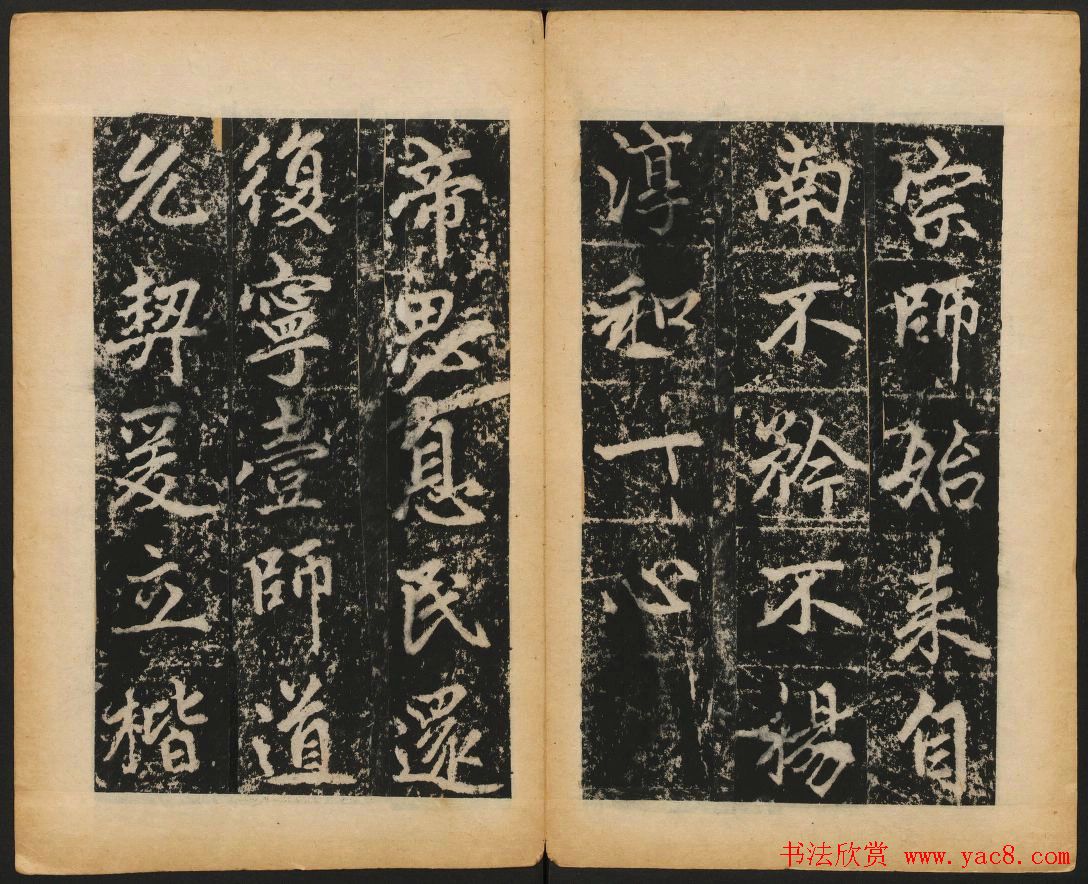 宗師始来自
南不矜不揚
淳和丁心
帝思息民還
復寧壹師道
允契爰立楷
书法欣赏 www.yac8.com